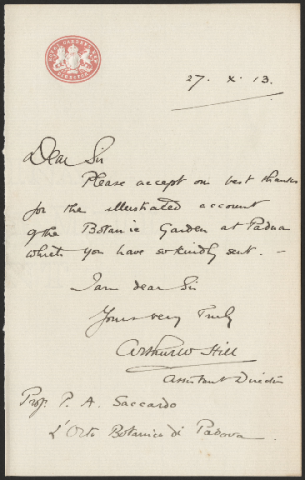 ROYAL GARDENS KEW
27. X. 13.
Dear Sir
Please accept our best thanks
for the illustrated account
of the Botanic Garden at Padua
which you have so kindly sent. —
I am dear Sir
Yours very truly
Arthur W Hill
Assistant Director
Prof. P. A. Saccardo
L'Orto Botanico di Padova.